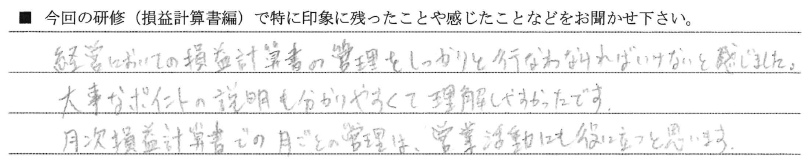 ■ 今回の研修（損益計算書編）で特に印象に残ったことや感じたことなどをお聞かせ下さい。
経営においての損益計算書の管理をしっかりと行なわなければいけないと感じました。
大事なポイントの説明も分かりやすくて理解しやすかったです。
月次損益計算書での月ごとの管理は、営業活動にも役に立つと思います。